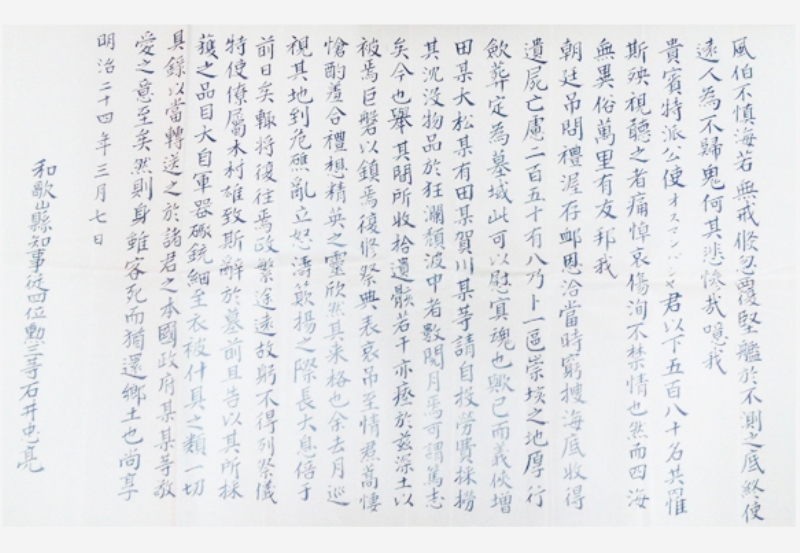 風伯不慎海若無戒倏忽覆堅艦於不測之底終使
遠人為不歸鬼何其悲慘哉噫我
貴賓特派公使オスマンパシヤ君以下五百八十名共罹
斯殃視聽之者痛悼哀傷洵不禁情也然而四海
無異俗萬里有友邦我
朝廷吊問禮渥存邺恩洽當時窮搜海底收得
遺屍亡慮二百五十有八乃卜一區崇垓之地厚行
歛葬定為墓域此可以慰冥魂也歟已而義俠増
田某大松某有田某賀川某等請自投勞費採撈
其沉沒物品於狂瀾頽波中者數閱月焉可謂篤志
矣今也舉其開所收拾遺骸若干亦瘞於茲深土以
被焉巨磐以鎮焉復修祭典表哀吊至情焄蒿悽
愴酌羞合禮想精英之靈欣然其来格也余去月巡
視其地到危礁亂立怒濤簸揚之際長大息倍于
前日矣輙将復往焉政繁途遠故躬不得列祭儀
特使僚屬木村雄致斯辭於墓前且告以其所採
獲之品目大自軍器礮銃細至衣被什具之類一切
具錄以當轉送之於諸君之本國政府某某等敬
愛之意至矣然則身雖客死而猶還鄉土也尚享
明治二十四年三月七日
和歌山縣知事從四位勲三等石井忠亮